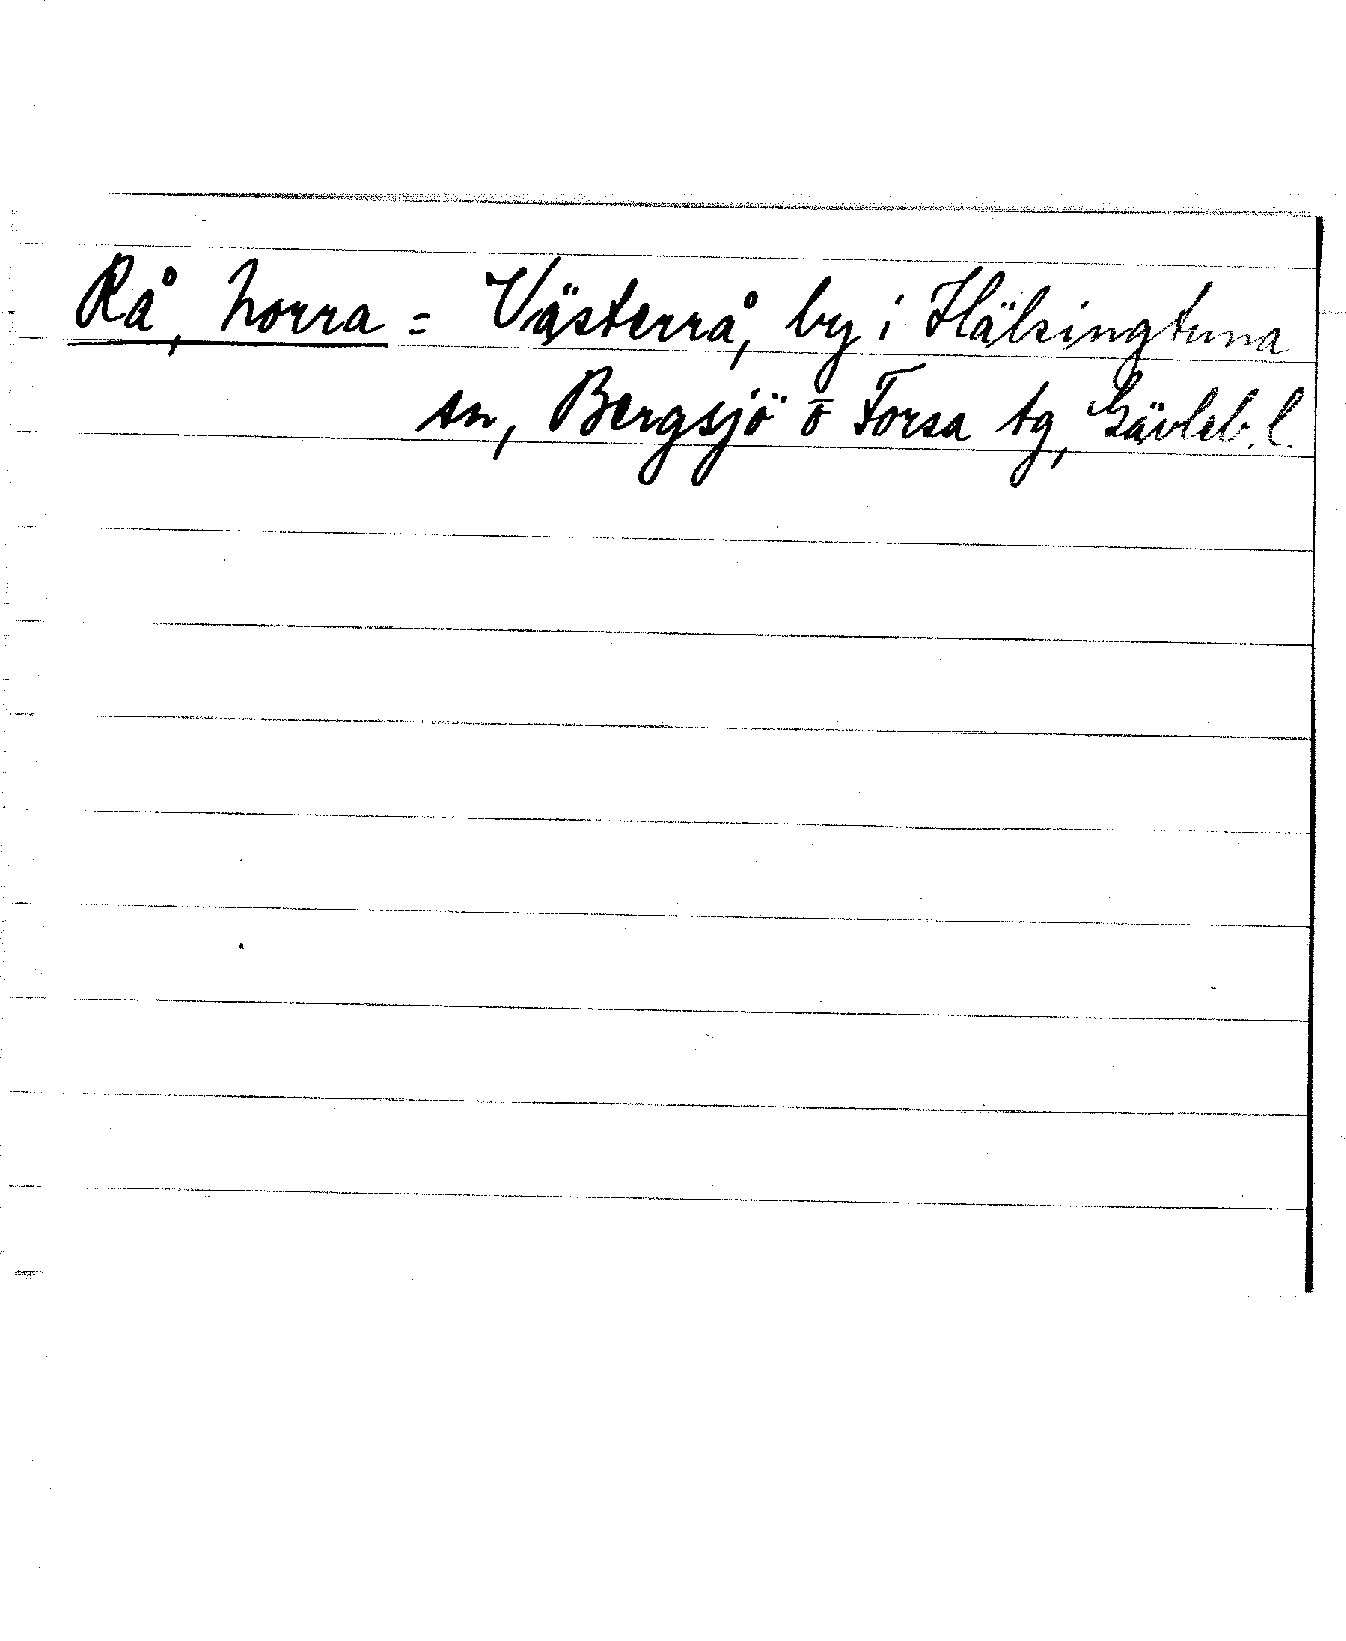 Rå, norra = Västerrå, by i Hälsingtuna
sn, Bergsjö o Forsa tg, Gävleb. l.